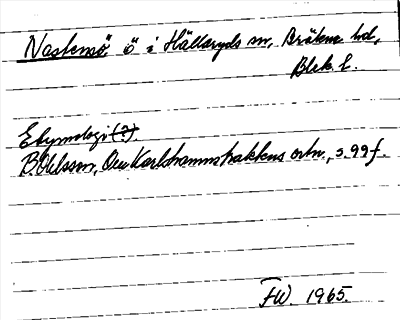 Nastensö, ö i Hällaryds sn, Bräkne hd,
Blek. l.
Etymologi (?)
B. Ohlsson, Om Karlshamnstraktens ortn., s. 99 f.
FW. 1965.